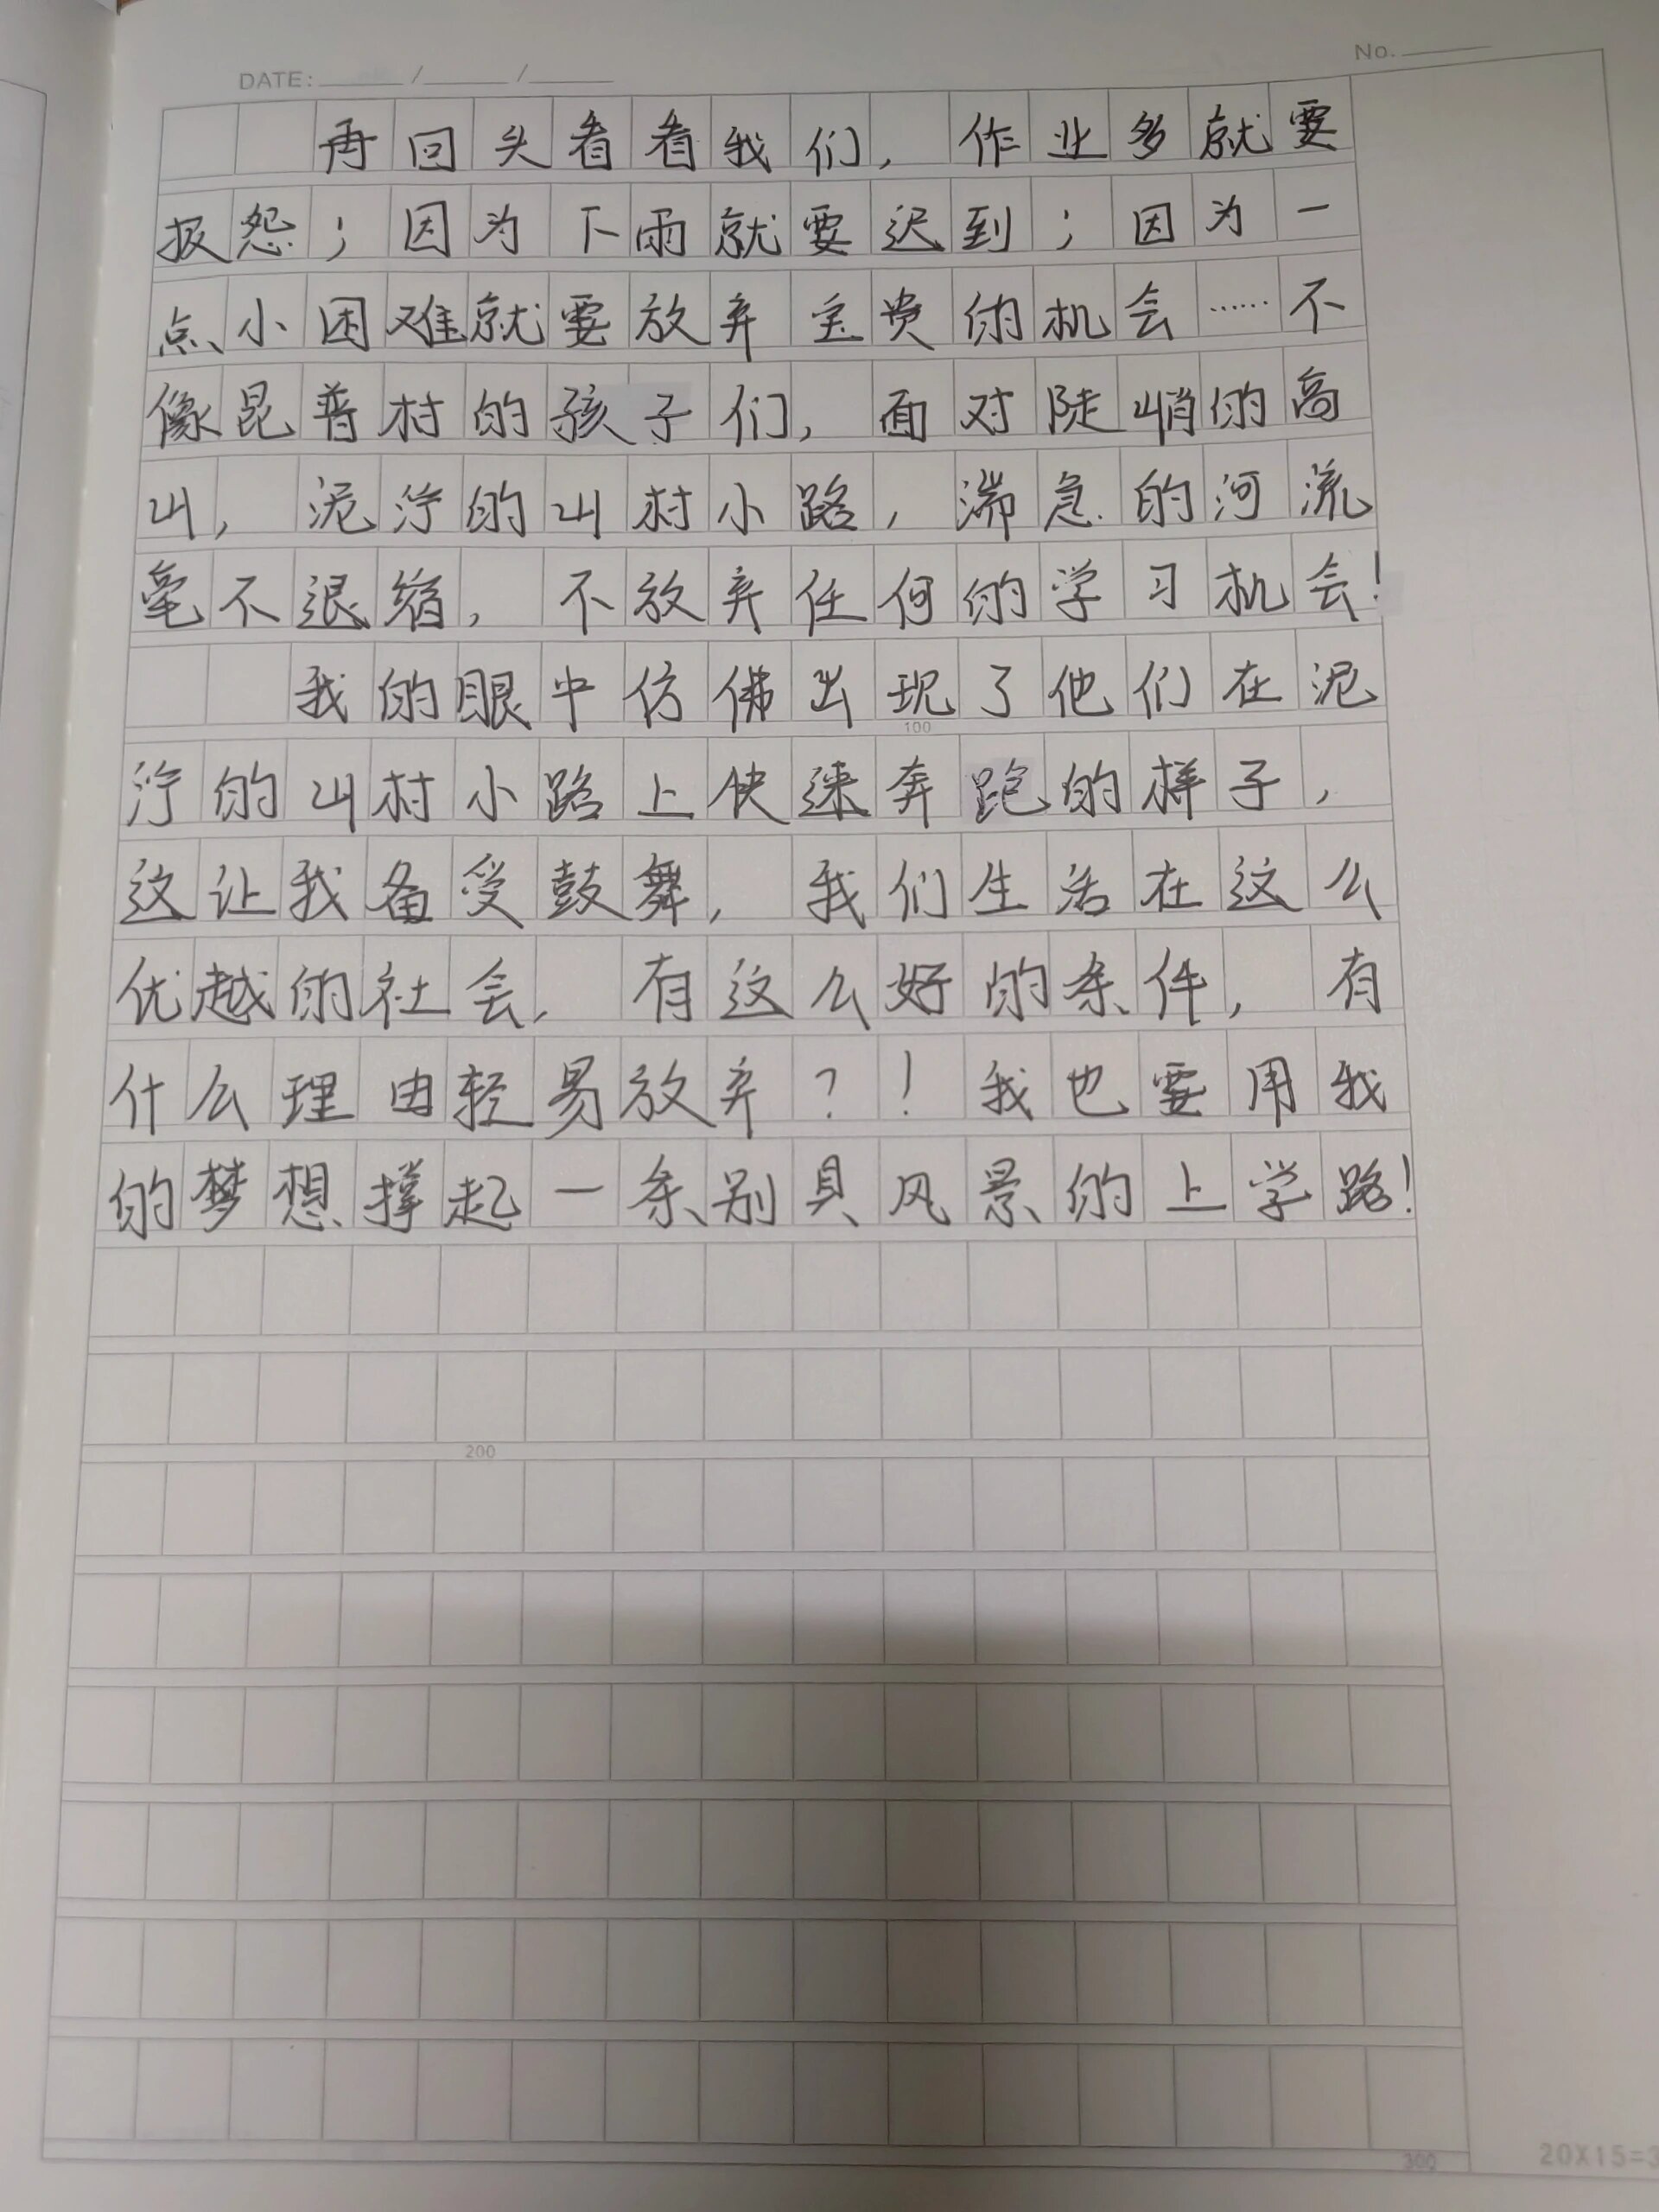 DATE: / /
No.
再回头看看我们，作业多就要
报怨；因为下雨就要迟到；因为一
点小困难就要放弃宝贵的机会……不
像昆普村的孩子们，面对陡峭的高
山，泥泞的山村小路，湍急的河流
毫不退缩，不放弃任何的学习机会！
我的眼中仿佛出现了他们在泥
100
泞的山村小路上快速奔跑的样子，
这让我备受鼓舞，我们生活在这么
优越的社会，有这么好的条件，有
什么理由轻易放弃？！我也要用我
的梦想撑起一条别具风景的上学路！
200
300
20X15=3